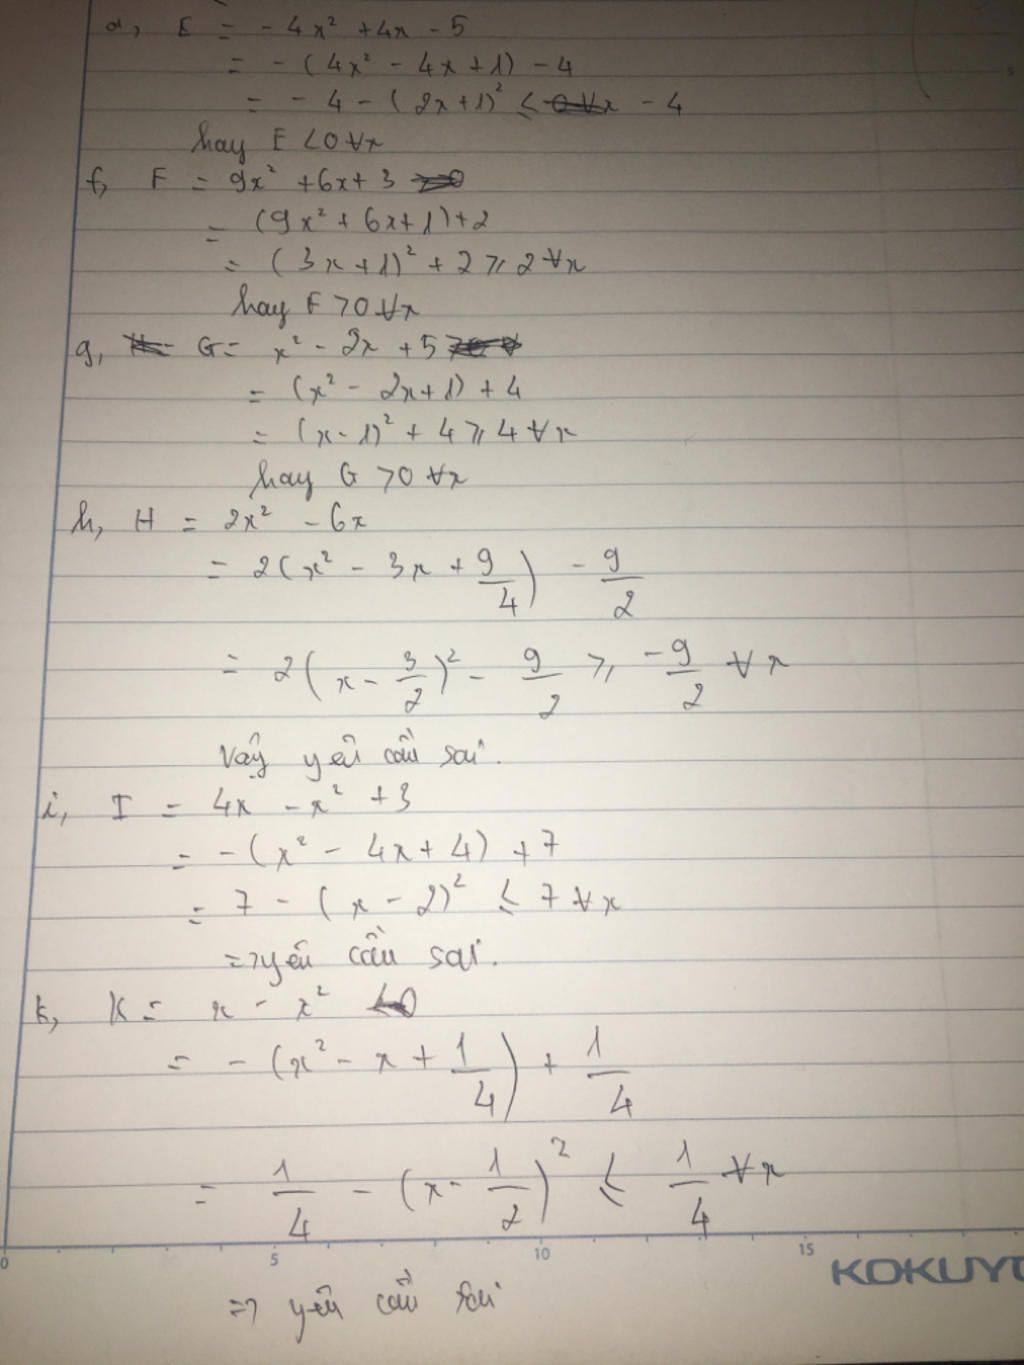 d, E = - 4x² + 4x - 5
= - (4x² - 4x + 1) - 4
= - 4 - (2x + 1)² ≤ 0 ∀x - 4
hay E < 0 ∀x
f, F = 9x² + 6x + 3 > 0
= (9x² + 6x + 1) + 2
= (3x + 1)² + 2 ≥ 2 ∀x
hay F > 0 ∀x
g, G = x² - 2x + 5
= (x² - 2x + 1) + 4
= (x - 1)² + 4 ≥ 4 ∀x
hay G > 0 ∀x
h, H = 2x² - 6x
= 2(x² - 3x + 9/4) - 9/2
= 2(x - 3/2)² - 9/2 ≥ -9/2 ∀x
Vậy yêu cầu sai.
i, I = 4x - x² + 3
= - (x² - 4x + 4) + 7
= 7 - (x - 2)² ≤ 7 ∀x
=> yêu cầu sai.
k, K = x - x² < 0
= - (x² - x + 1/4) + 1/4
= 1/4 - (x - 1/2)² ≤ 1/4 ∀x
0 5 10 15
KOKUYO
=> yêu cầu sai